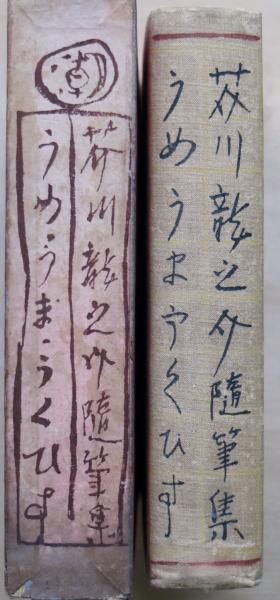 芥川龍之介隨筆集
うめうまうくひす
芥川龍之介隨筆集
うめ・うま・うくひす